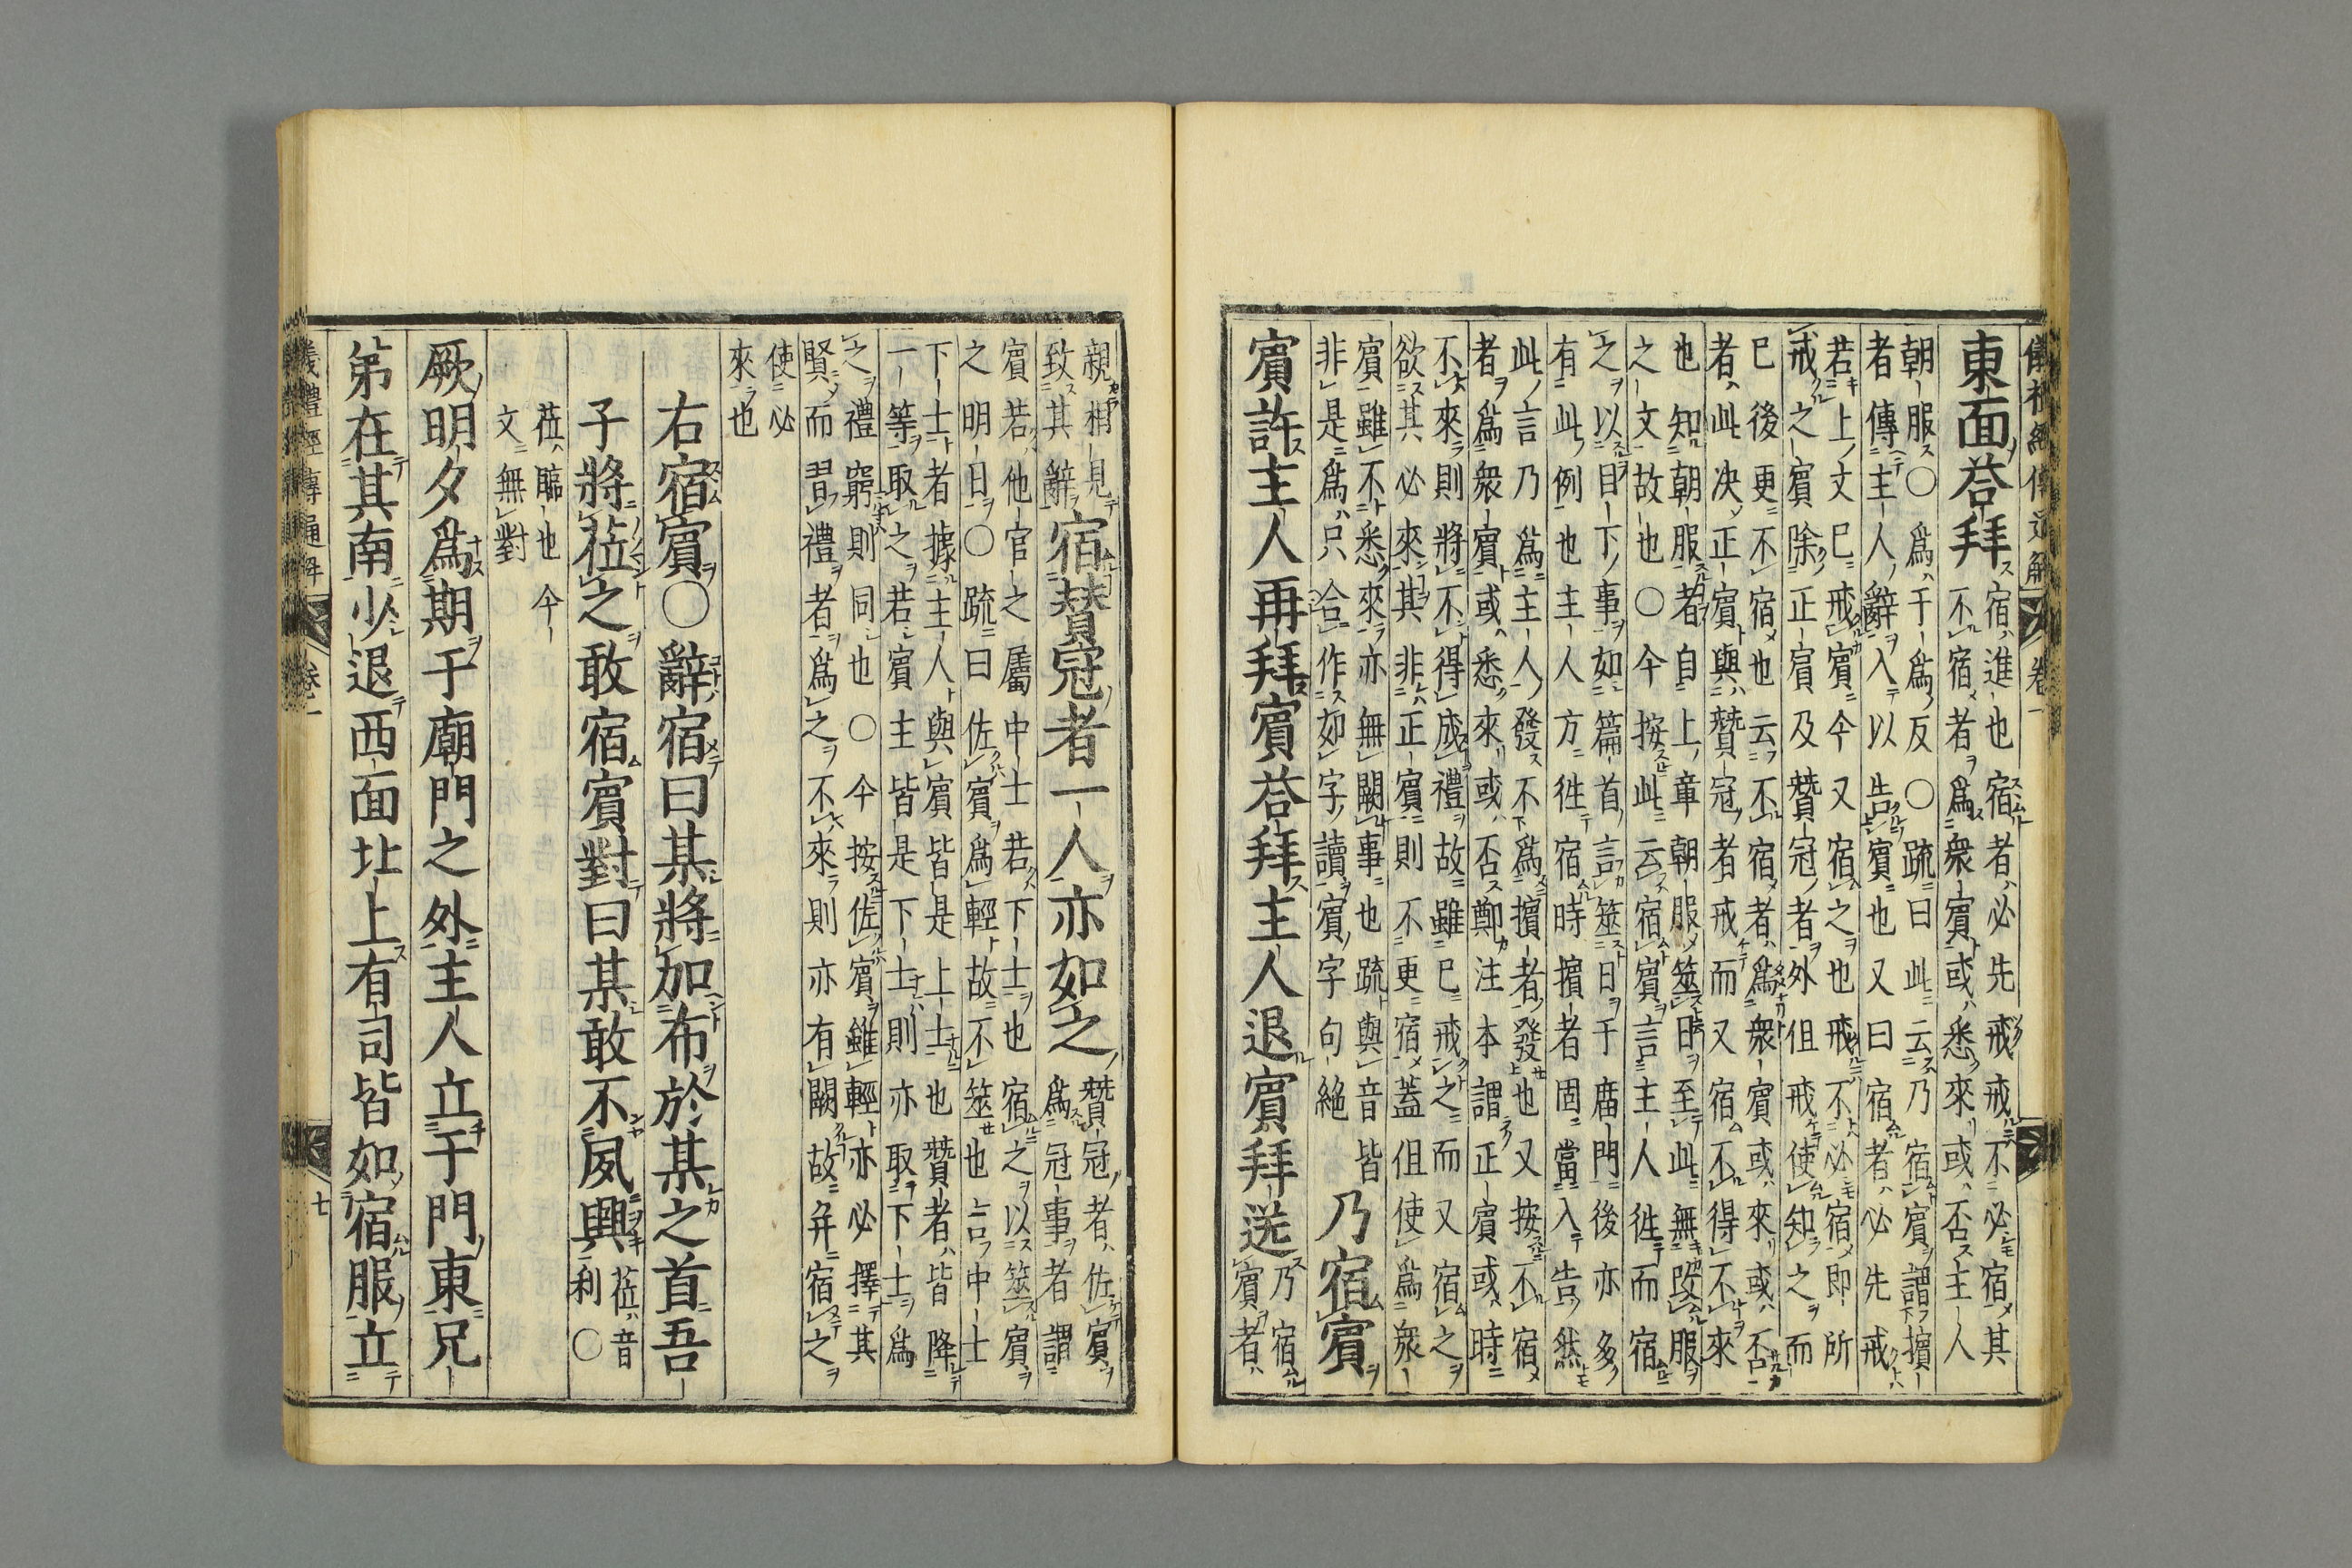 儀禮經傳通解 卷一
東面荅拜
宿進也宿者必先戒戒不必宿其
不宿者爲衆賓或悉來或否主人
朝服〇爲于爲反〇疏曰此云乃宿賓謂擯
者傳主人辭入以告賓也又曰宿者必先戒
若上文巳戒賓今又宿之也戒不必宿即所
戒之賓除正賓及贊冠者外但戒使知之而
巳後更不宿也云不宿者爲衆賓或來或否
者此决正賓與贊冠者戒而又宿不得不來
也知朝服者自上章朝服筮日至此無改服
之文故也〇今按此云宿賓言主人徃而宿
之以目下事如篇首言筮日于廟門後亦多
有此例也主人方徃宿時擯者固當入告然
此言乃爲主人發不爲擯者發也又按不宿
者爲衆賓或悉來或否鄭注本謂正賓或時
不來則將不得成禮故雖巳戒之而又宿之
欲其必來其非正賓則不更宿蓋但使爲衆
賓雖不悉來亦無闕事也疏與音皆
非是爲只合作如字讀賓字句絶
乃宿賓
賓許主人再拜賓荅拜主人退賓拜送
乃宿
賓者
親相見
致其辭
宿贊冠者一人亦如之
贊冠者佐賓
爲冠事者謂
賓若他官之屬中士若下士也宿之以筮賓
之明日〇疏曰佐賓爲輕故不筮也言中士
下士者據主人與賓皆是上士也贊者皆降
一等取之若賓主皆是下士則亦取下士爲
之禮窮則同也〇今按佐賓雖輕亦必擇其
賢而習禮者爲之不來則亦有闕故并宿之
使必
來也
右宿賓〇辭宿曰某將加布於某之首吾
子將莅之敢宿賓對曰某敢不夙興
莅音
利〇
莅臨也今
文無對
厥明夕爲期于廟門之外主人立于門東兄
弟在其南少退西面北上有司皆如宿服立
儀禮經傳通解 卷一 七